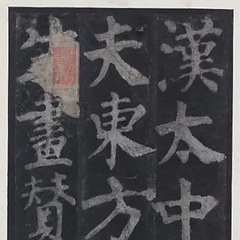 漢太中
夫東方
生畫贊